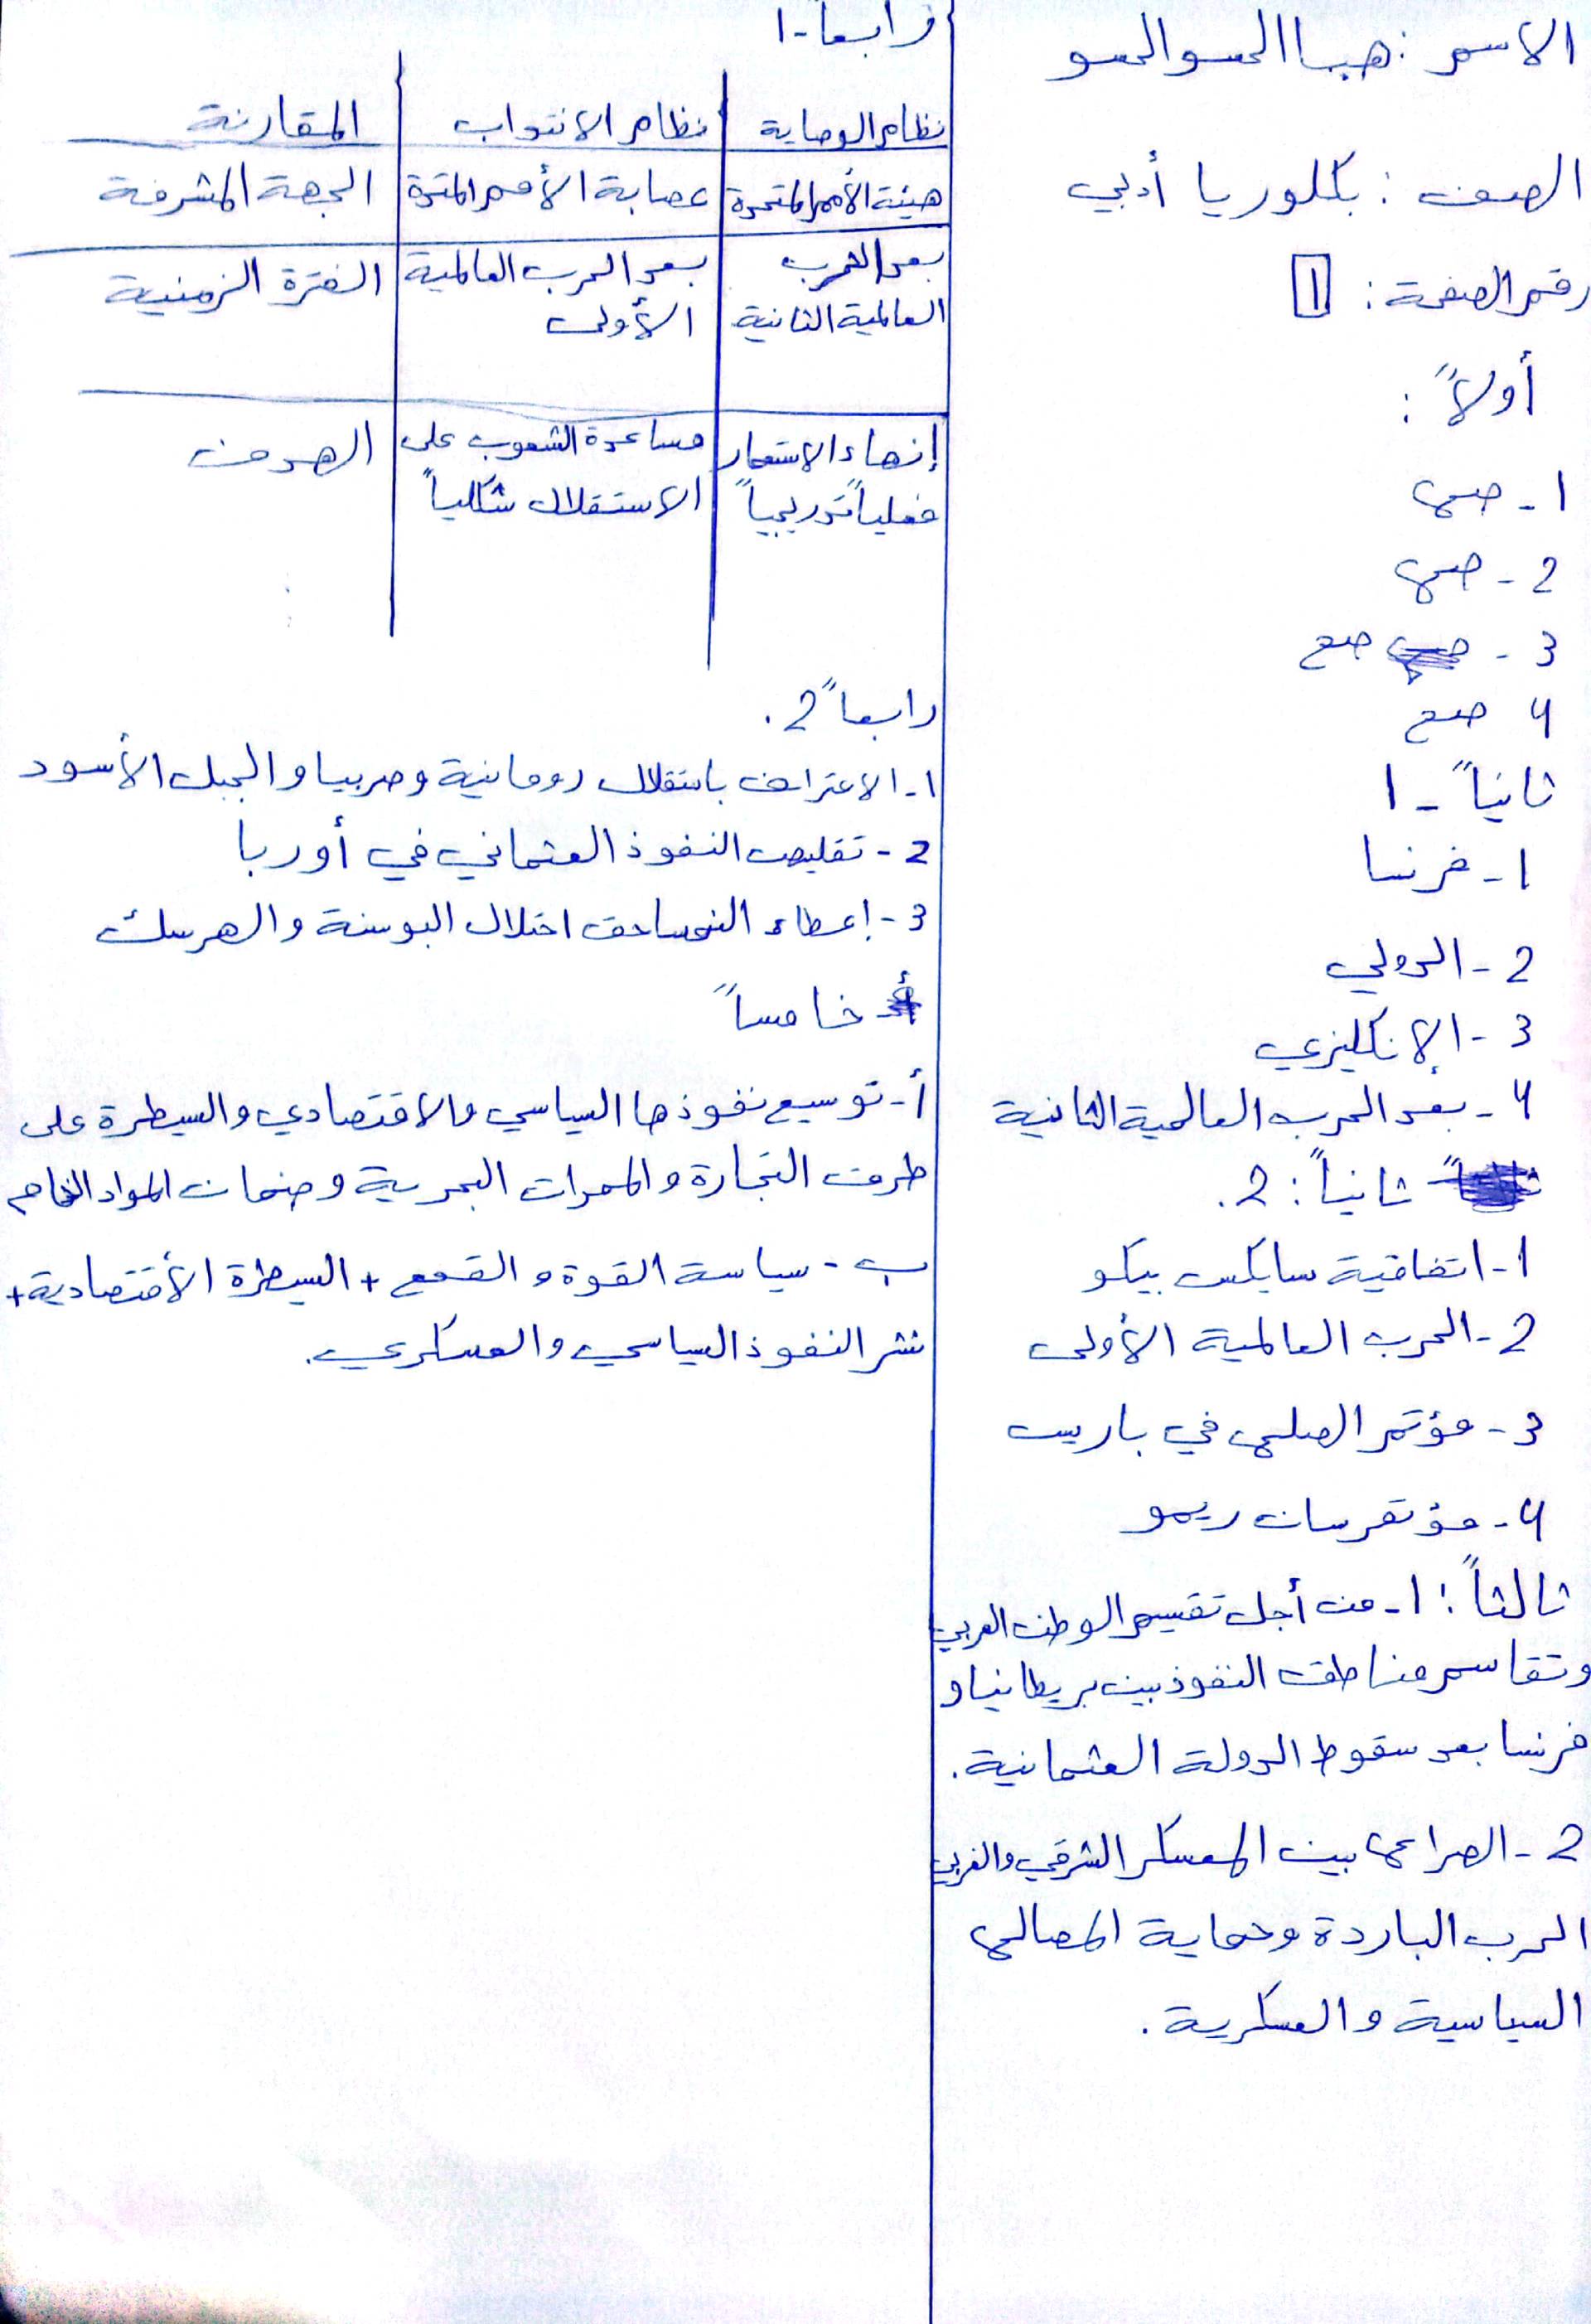 الاسم: هبا الحسو الحسو
الصف: بكلوريا أدبي
رقم الصفحة: 1
أولاً:
1- صح
2- صح
3- صح صع
4 صع
ثانياً - 1
1- فرنسا
2- الدولي
3- الإنكليزي
4- بعد الحرب العالمية الثانية
ثانياً: 2.
1- اتفاقية سايكس بيكو
2- الحرب العالمية الأولى
3- مؤتمر الصلح في باريس
4- مؤتمر سان ريمو
ثالثاً: 1- من أجل تقسيم الوطن العربي
وتقاسم مناطق النفوذ بين بريطانيا و
فرنسا بعد سقوط الدولة العثمانية.
2- الصراع بين المعسكر الشرقي والغربي
الحرب الباردة وحماية المصالح
السياسية والعسكرية.
رابعاً-1
المقارنة نظام الانتداب نظام الوصاية
الجهة المشرفة عصابة الأمم المتحدة هيئة الأمم المتحدة
الفترة الزمنية بعد الحرب العالمية بعد الحرب
الأولى العالمية الثانية
الهدف مساعدة الشعوب على إنهاء الاستعمار
الاستقلال شكلياً فعلياً تدريجياً
رابعاً 2.
1- الاعتراف باستقلال رومانية وصربيا والجبل الأسود
2- تقليص النفوذ العثماني في أوربا
3- إعطاء النمسا حق احتلال البوسنة والهرسك
خامساً
أ- توسيع نفوذها السياسي والاقتصادي والسيطرة على
طرق التجارة والممرات البحرية وضمان المواد الخام
ب- سياسة القوة والقمع + السيطرة الأقتصادية +
نشر النفوذ السياسي والعسكري.